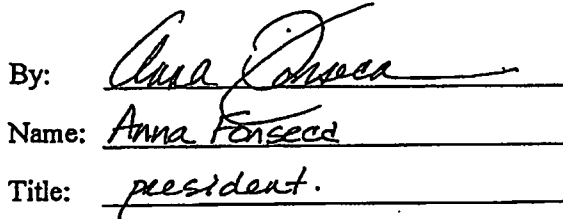 By: Anna Fonseca
Name: Anna Fonseca
Title: president.